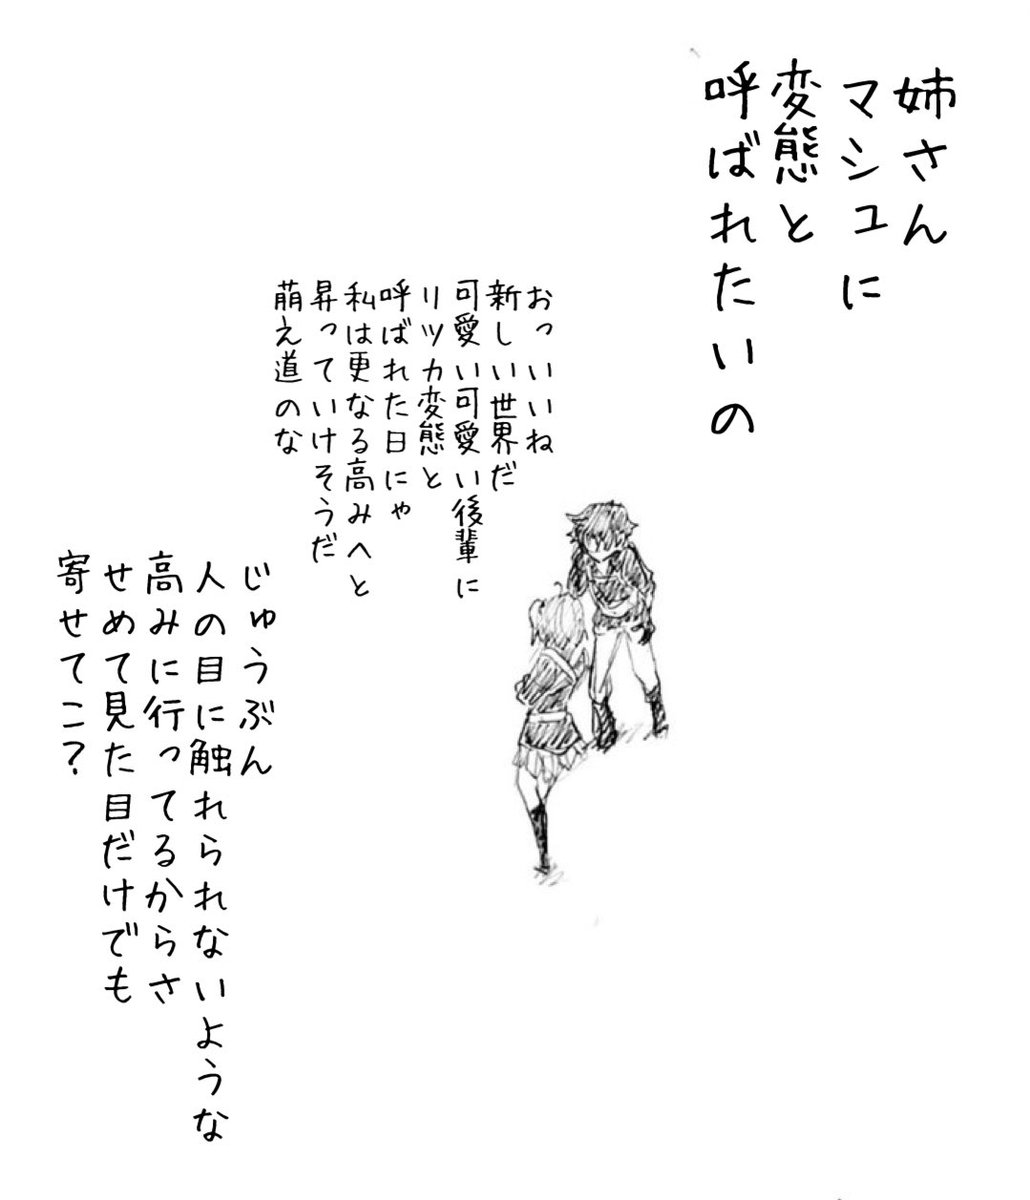 姉さん
マシュに
変態と
呼ばれたいの
おっいいね
新しい世界だ
可愛い可愛い後輩に
リツカ変態と
呼ばれた日にゃ
私は更なる高みへと
昇っていけそうだ
萌え道のな
じゅうぶん
人の目に触れられないような
高みに行ってるからさ
せめて見た目だけでも
寄せてこ？